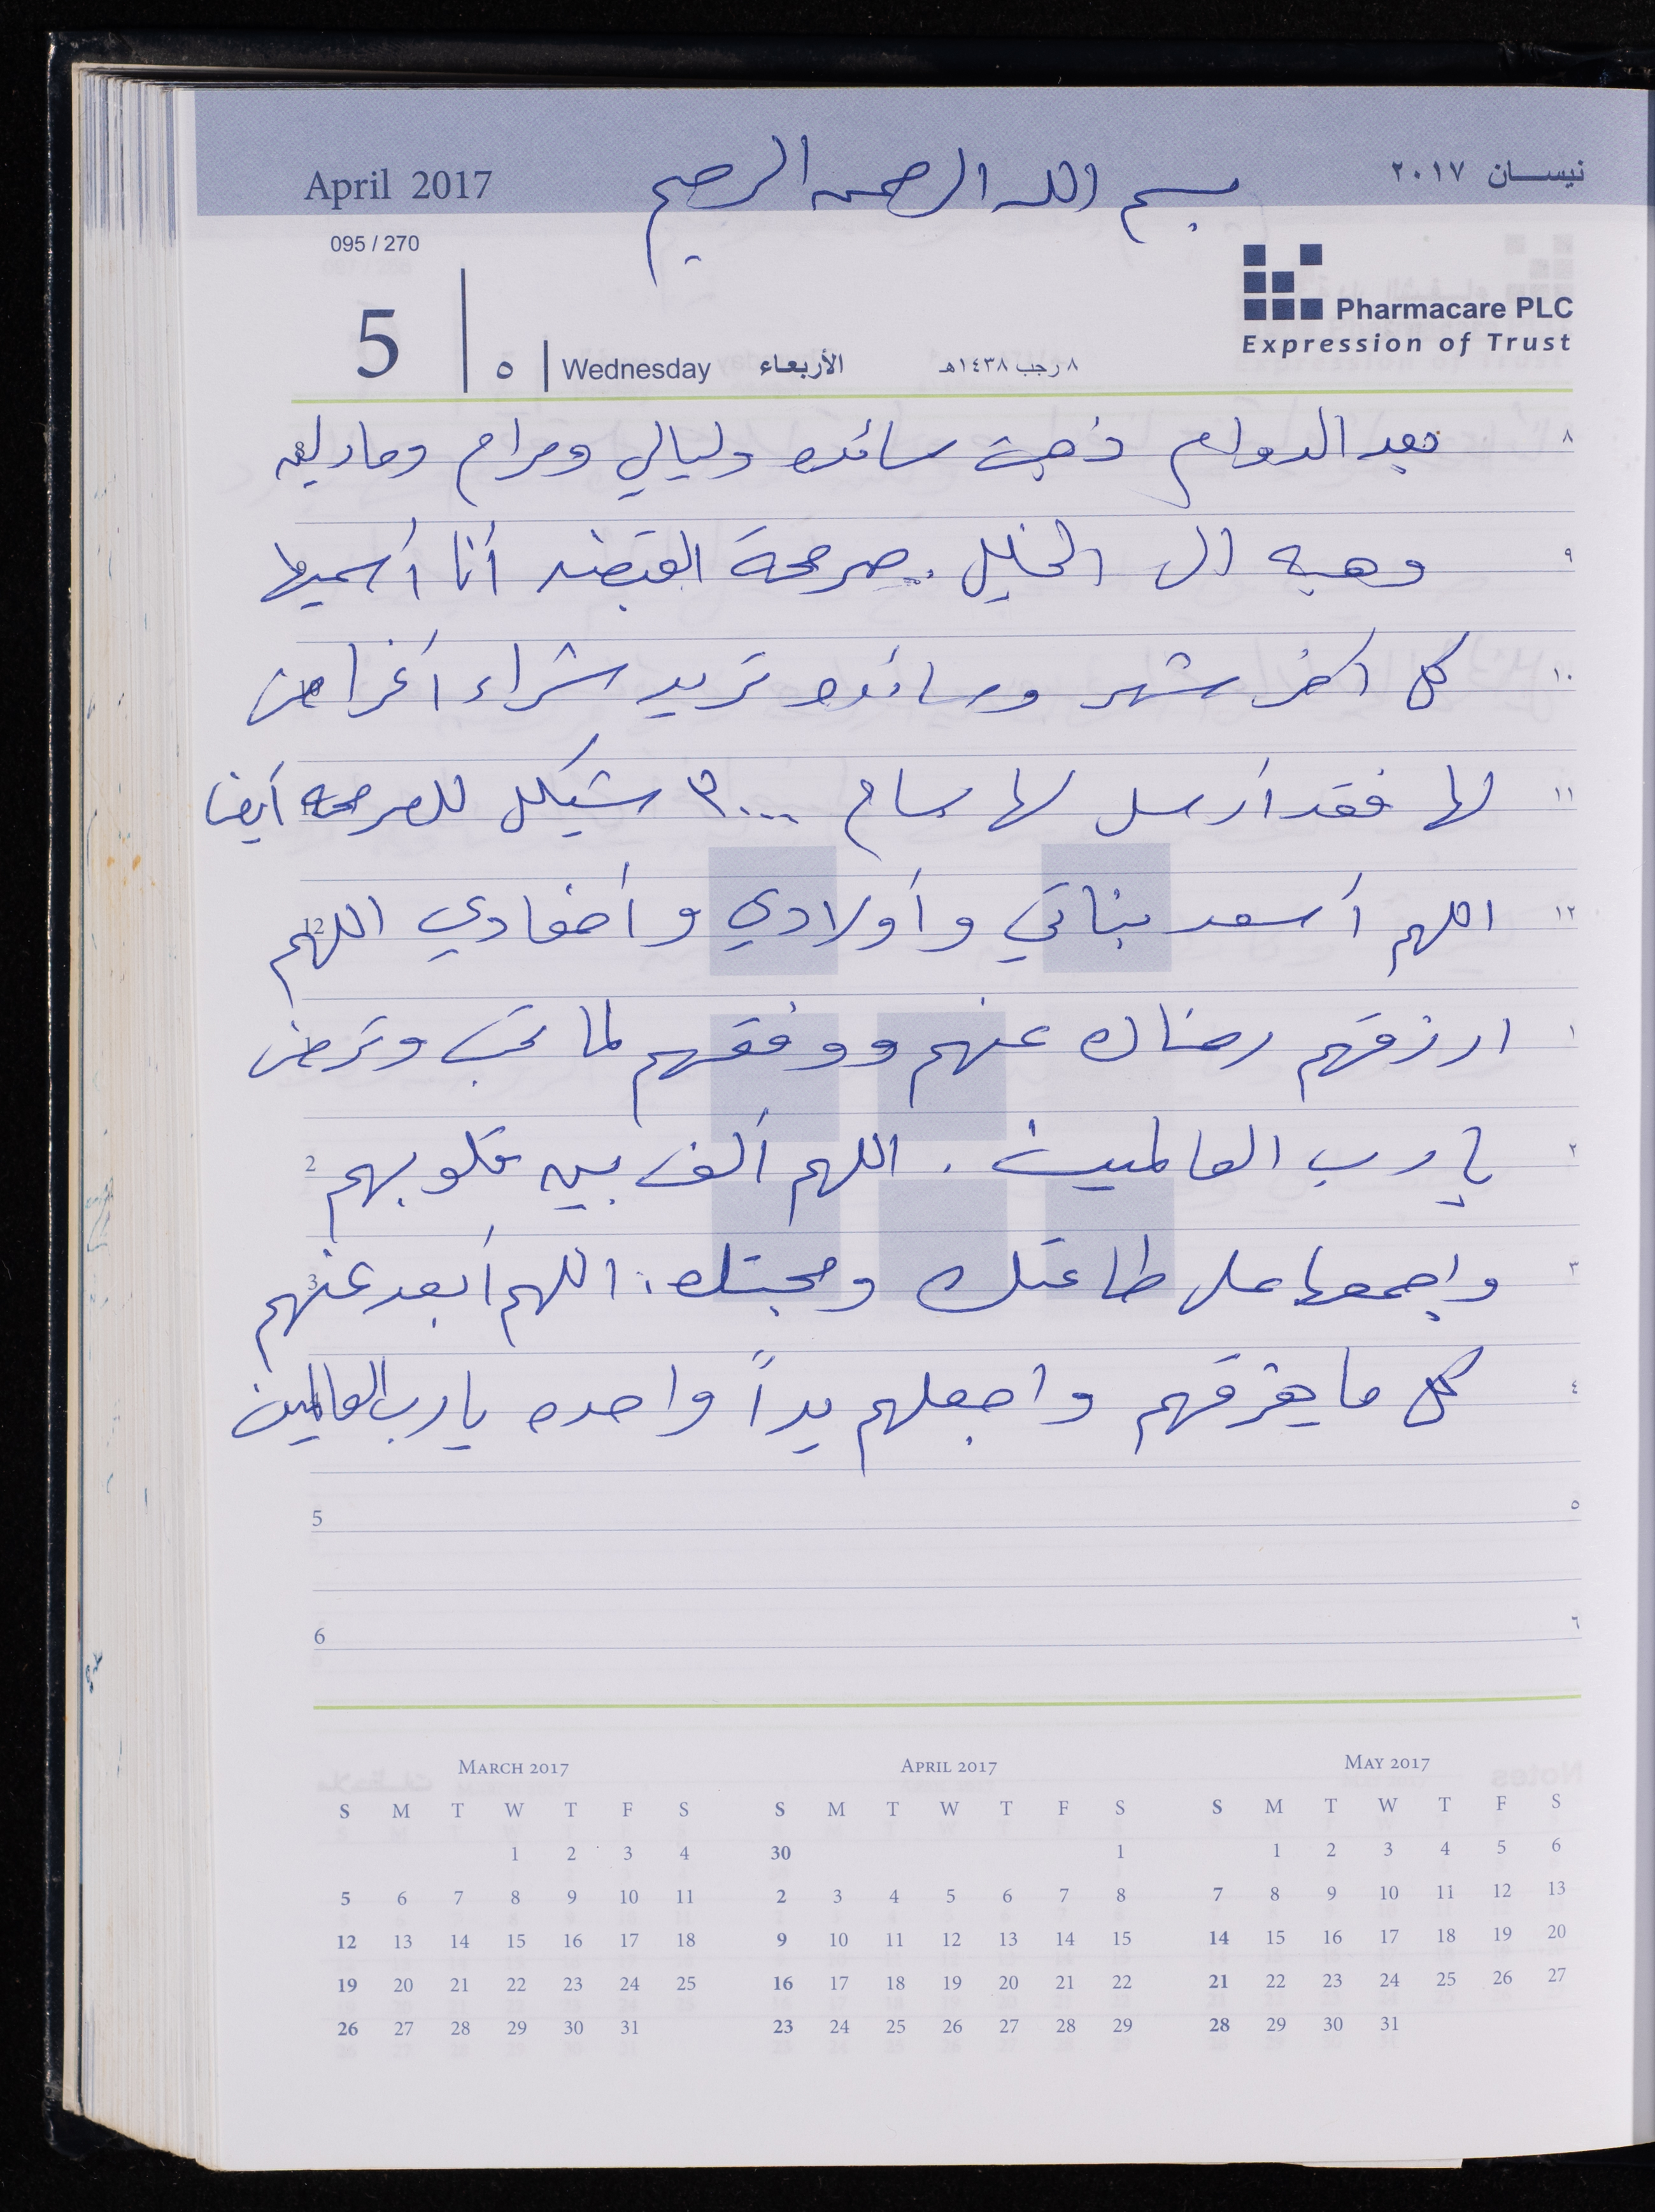 April 2017
بسم الله الرحمن الرحيم
نيسان ٢٠١٧
095 / 270
Pharmacare PLC
Expression of Trust
5 | ٥ | Wednesday الأربعاء ٨ رجب ١٤٣٨هـ
٨ بعد الدوام ذهبت سائده وليالي ومرام ومادلين
٩ وهبه الى الخليل . صرمحة القبضه أنا أسميها
١٠ كل اخر شهر وسائده تريد شراء أغراض
١١ لها فقد أرسل لها بسام ٣٠٠٠ شيكل للصرمحه أيضا
١٢ اللهم أسعد بناتي وأولادي وأحفادي اللهم 12
١ ارزقهم رضاك عنهم ووفقهم لما تحب وترضى
٢ يا رب العالمين . اللهم ألف بين قلوبهم 2
٣ واجمعها على طاعتك ومحبتك . اللهم أبعد عنهم 3
٤ كل ما يفرقهم واجعلهم يداً واحده يا رب العالمين
5 ٥
6 ٦
March 2017
S M T W T F S
1 2 3 4
5 6 7 8 9 10 11
12 13 14 15 16 17 18
19 20 21 22 23 24 25
26 27 28 29 30 31
April 2017
S M T W T F S
30 1
2 3 4 5 6 7 8
9 10 11 12 13 14 15
16 17 18 19 20 21 22
23 24 25 26 27 28 29
May 2017
S M T W T F S
1 2 3 4 5 6
7 8 9 10 11 12 13
14 15 16 17 18 19 20
21 22 23 24 25 26 27
28 29 30 31